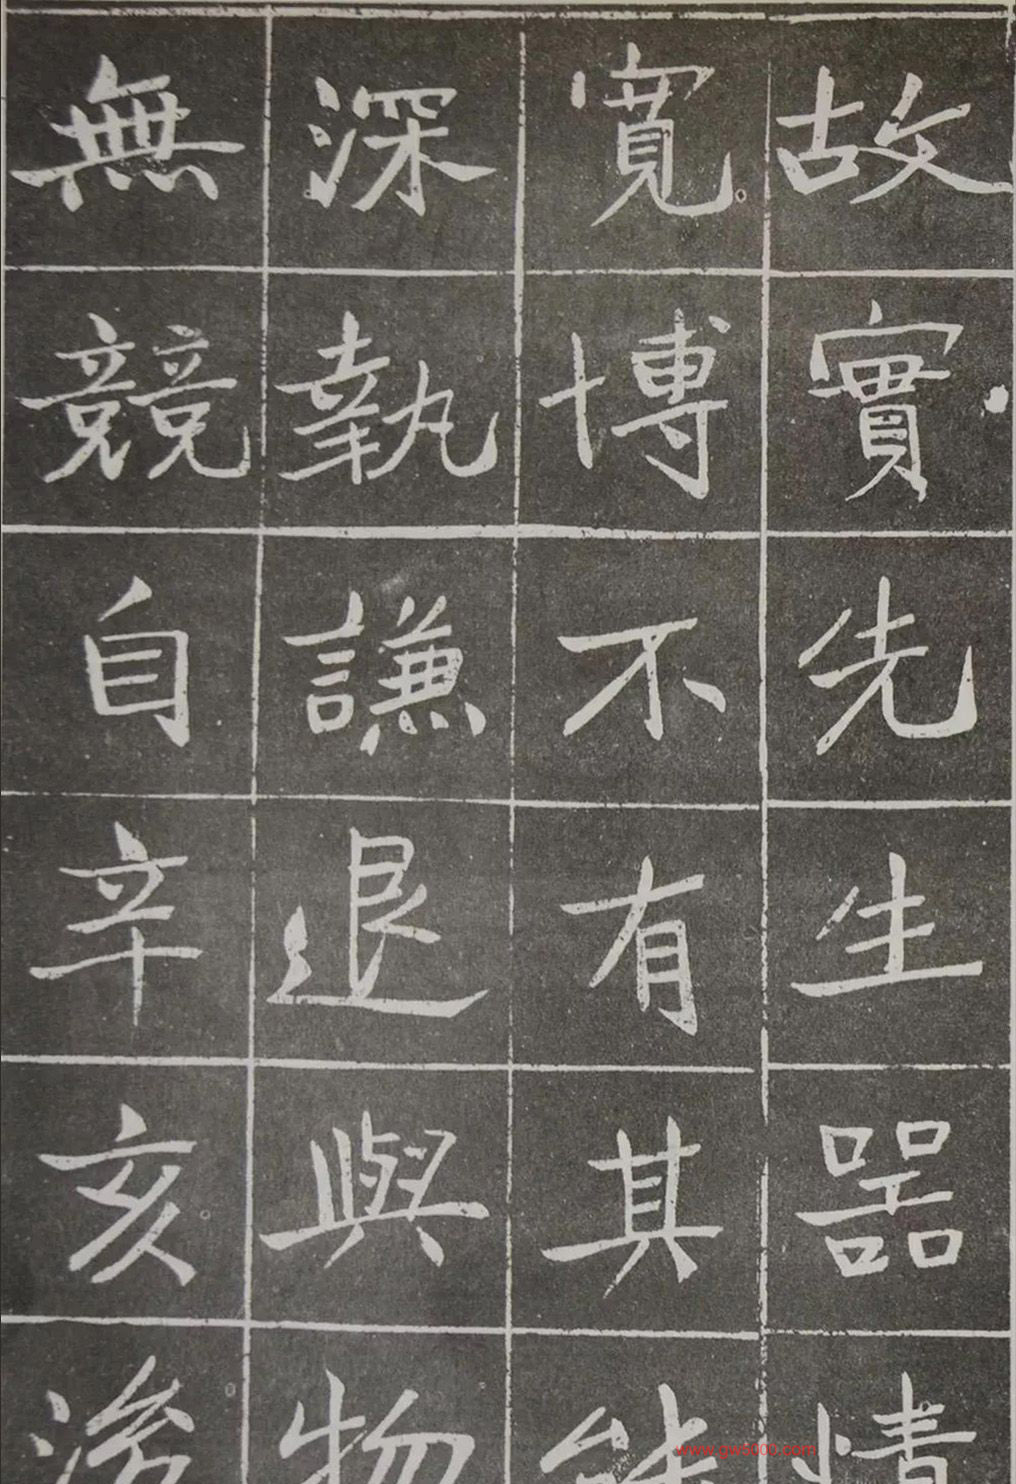 故實先生噐情
寬博不有其能
深執謙退與物
無競自辛亥後